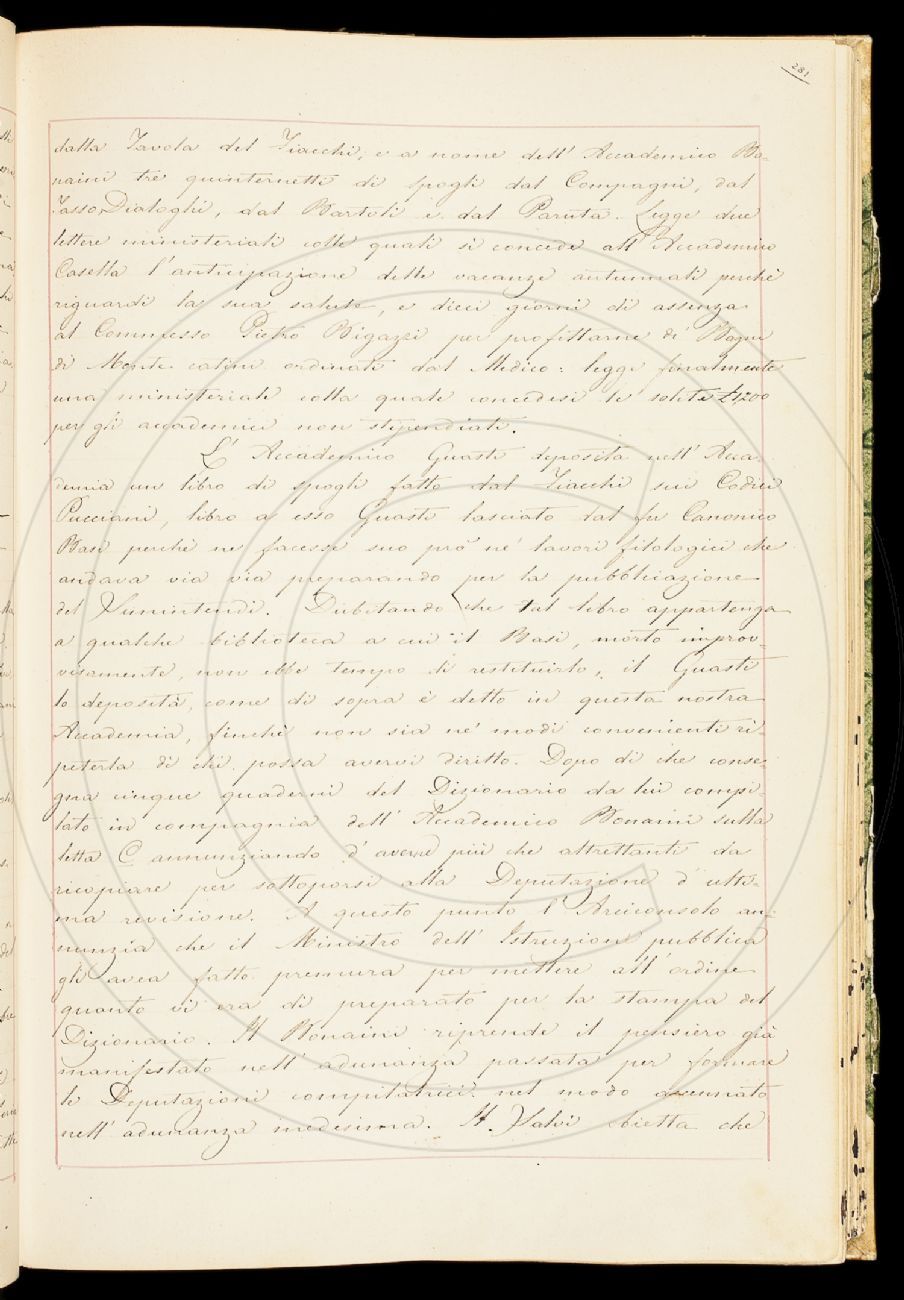 281
dalla Tavola del Fiacchi; e a nome dell' Accademico Bo-
naini tre quinternetti di spogli dal Compagni, dal
Tasso, Dialoghi, dal Bartoli e dal Paruta. Legge due
lettere ministeriali colle quali si concede all' Accademico
Casella l'anticipazione delle vacanze autunnali perchè
riguardi la sua salute, e dieci giorni di assenza
al Commesso Pietro Bigazzi per profittarne di Bagni
di Monte catini ordinati dal Medico: legge finalmente
una ministeriale colla quale concedesi le solite £1200
per gli accademici non stipendiati.
L' Accademico Guasti deposita nell' Acca-
demia un libro di spogli fatto dal Fiacchi sui Codici
Pucciani, libro a esso Guasti lasciato dal fu Canonico
Basi perchè ne facesse suo prò ne' lavori filologici che
andava via via preparando per la pubblicazione
del Simintendi. Dubitando che tal libro appartenga
a qualche biblioteca a cui il Basi, morto improv-
visamente, non ebbe tempo di restituirlo, il Guasti
lo deposità, come di sopra è detto in questa nostra
Accademia, finchè non sia ne' modi convenienti ri-
peterla di chi possa avervi diritto. Dopo di che conse-
gna cinque quaderni del Dizionario da lui compi-
lato in compagnia dell' Accademico Bonaini sulla
letta C annunziando d' averne più che altrettanti da
ricopiare per sottoporsi alla Deputazione d' ulti-
ma revisione. A questo punto l' Arciconsolo an-
nunzia che il Ministro dell' Istruzion pubblica
gli avea fatto premura per mettere all' ordine
quanto vi era di preparato per la stampa del
Dizionario. Il Bonaini riprende il pensiero già
manifestato nell' adunanza passata per formare
le Deputazioni compilatrici nel modo accennato
nell' adunanza medesima. Il Salvi obietta che